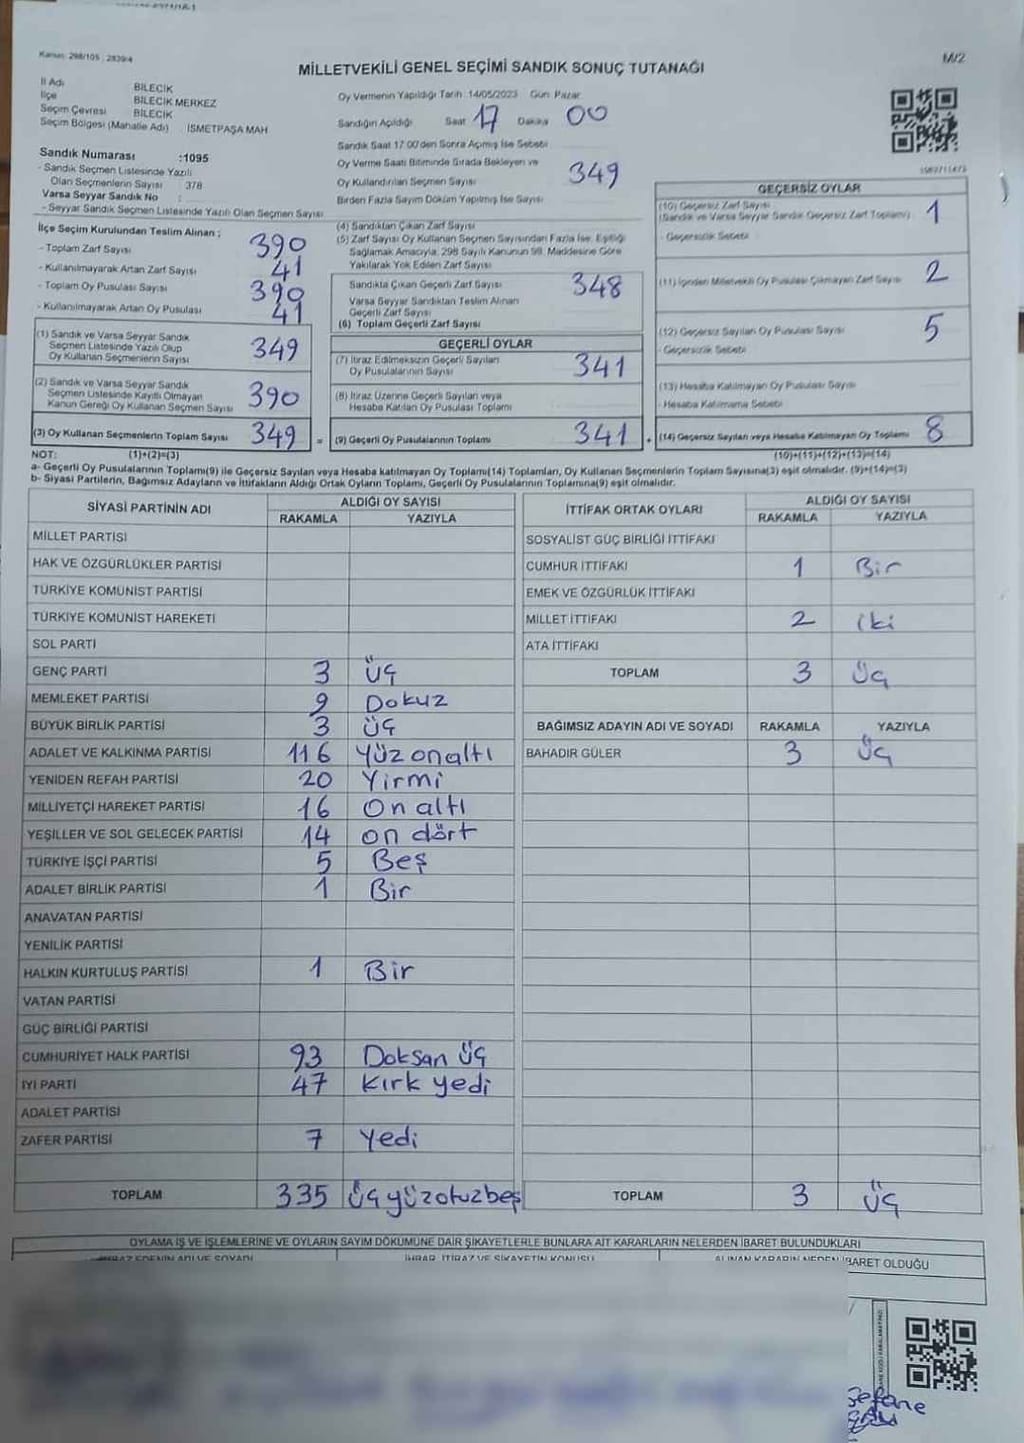 Kanun: 298/105 ; 2839/4
MİLLETVEKİLİ GENEL SEÇİMİ SANDIK SONUÇ TUTANAĞI
M/2
İl Adı BİLECİK
İlçe BİLECİK MERKEZ
Seçim Çevresi BİLECİK
Seçim Bölgesi (Mahalle Adı) İSMETPAŞA MAH
Oy Vermenin Yapıldığı Tarih :14/05/2023 Gün: Pazar
Sandığın Açıldığı Saat 17 Dakika 00
Sandık Saat 17:00'den Sonra Açılmış İse Sebebi
Sandık Numarası :1095
- Sandık Seçmen Listesinde Yazılı
Olan Seçmenlerin Sayısı : 378
Varsa Seyyar Sandık No :
- Seyyar Sandık Seçmen Listesinde Yazılı Olan Seçmen Sayısı:
Oy Verme Saati Bitiminde Sırada Bekleyen ve
Oy Kullandırılan Seçmen Sayısı 349
Birden Fazla Sayım Döküm Yapılmış İse Sayısı
İlçe Seçim Kurulundan Teslim Alınan ;
- Toplam Zarf Sayısı 390
- Kullanılmayarak Artan Zarf Sayısı 41
- Toplam Oy Pusulası Sayısı 390
- Kullanılmayarak Artan Oy Pusulası 41
(1) Sandık ve Varsa Seyyar Sandık
Seçmen Listesinde Yazılı Olup
Oy Kullanan Seçmenlerin Sayısı 349
(2) Sandık ve Varsa Seyyar Sandık
Seçmen Listesinde Kayıtlı Olmayan
Kanun Gereği Oy Kullanan Seçmen Sayısı 390
(3) Oy Kullanan Seçmenlerin Toplam Sayısı 349 =
(4) Sandıktan Çıkan Zarf Sayısı
(5) Zarf Sayısı Oy Kullanan Seçmen Sayısından Fazla İse, Eşitliği
Sağlamak Amacıyla, 298 Sayılı Kanunun 98. Maddesine Göre
Yakılarak Yok Edilen Zarf Sayısı
Sandıkta Çıkan Geçerli Zarf Sayısı 348
Varsa Seyyar Sandıktan Teslim Alınan
Geçerli Zarf Sayısı
(6) Toplam Geçerli Zarf Sayısı
GEÇERLİ OYLAR
(7) İtiraz Edilmeksizin Geçerli Sayılan
Oy Pusulalarının Sayısı 341
(8) İtiraz Üzerine Geçerli Sayılan veya
Hesaba Katılan Oy Pusulası Toplamı
(9) Geçerli Oy Pusulalarının Toplamı 341 +
GEÇERSİZ OYLAR
(10) Geçersiz Zarf Sayısı
(Sandık ve Varsa Seyyar Sandık Geçersiz Zarf Toplamı) 1
- Geçersizlik Sebebi
(11) İçinden Milletvekili Oy Pusulası Çıkmayan Zarf Sayısı 2
(12) Geçersiz Sayılan Oy Pusulası Sayısı 5
- Geçersizlik Sebebi
(13) Hesaba Katılmayan Oy Pusulası Sayısı
- Hesaba Katılmama Sebebi
(14) Geçersiz Sayılan veya Hesaba Katılmayan Oy Toplamı 8
NOT: (1)+(2)=(3) (10)+(11)+(12)+(13)=(14)
a- Geçerli Oy Pusulalarının Toplamı(9) ile Geçersiz Sayılan veya Hesaba katılmayan Oy Toplamı(14) Toplamları, Oy Kullanan Seçmenlerin Toplam Sayısına(3) eşit olmalıdır. (9)+(14)=(3)
b- Siyasi Partilerin, Bağımsız Adayların ve İttifakların Aldığı Ortak Oyların Toplamı, Geçerli Oy Pusulalarının Toplamına(9) eşit olmalıdır.
SİYASİ PARTİNİN ADI ALDIĞI OY SAYISI
RAKAMLA YAZIYLA
MİLLET PARTİSİ
HAK VE ÖZGÜRLÜKLER PARTİSİ
TÜRKİYE KOMÜNİST PARTİSİ
TÜRKİYE KOMÜNİST HAREKETİ
SOL PARTİ
GENÇ PARTİ 3 üç
MEMLEKET PARTİSİ 9 Dokuz
BÜYÜK BİRLİK PARTİSİ 3 üç
ADALET VE KALKINMA PARTİSİ 116 Yüz onaltı
YENİDEN REFAH PARTİSİ 20 Yirmi
MİLLİYETÇİ HAREKET PARTİSİ 16 On altı
YEŞİLLER VE SOL GELECEK PARTİSİ 14 on dört
TÜRKİYE İŞÇİ PARTİSİ 5 Beş
ADALET BİRLİK PARTİSİ 1 Bir
ANAVATAN PARTİSİ
YENİLİK PARTİSİ
HALKIN KURTULUŞ PARTİSİ 1 Bir
VATAN PARTİSİ
GÜÇ BİRLİĞİ PARTİSİ
CUMHURİYET HALK PARTİSİ 93 Doksan üç
İYİ PARTİ 47 Kırk yedi
ADALET PARTİSİ
ZAFER PARTİSİ 7 Yedi
TOPLAM 335 üçyüzotuzbeş
İTTİFAK ORTAK OYLARI ALDIĞI OY SAYISI
RAKAMLA YAZIYLA
SOSYALİST GÜÇ BİRLİĞİ İTTİFAKI
CUMHUR İTTİFAKI 1 Bir
EMEK VE ÖZGÜRLÜK İTTİFAKI
MİLLET İTTİFAKI 2 iki
ATA İTTİFAKI
TOPLAM 3 üç
BAĞIMSIZ ADAYIN ADI VE SOYADI RAKAMLA YAZIYLA
BAHADIR GÜLER 3 üç
TOPLAM 3 üç
OYLAMA İŞ VE İŞLEMLERİNE VE OYLARIN SAYIM DÖKÜMÜNE DAİR ŞİKAYETLERLE BUNLARA AİT KARARLARIN NELERDEN İBARET BULUNDUKLARI
İHBAR, İTİRAZ VE ŞİKAYETİN KONUSU
ALINAN KARARIN NEDEN İBARET OLDUĞU